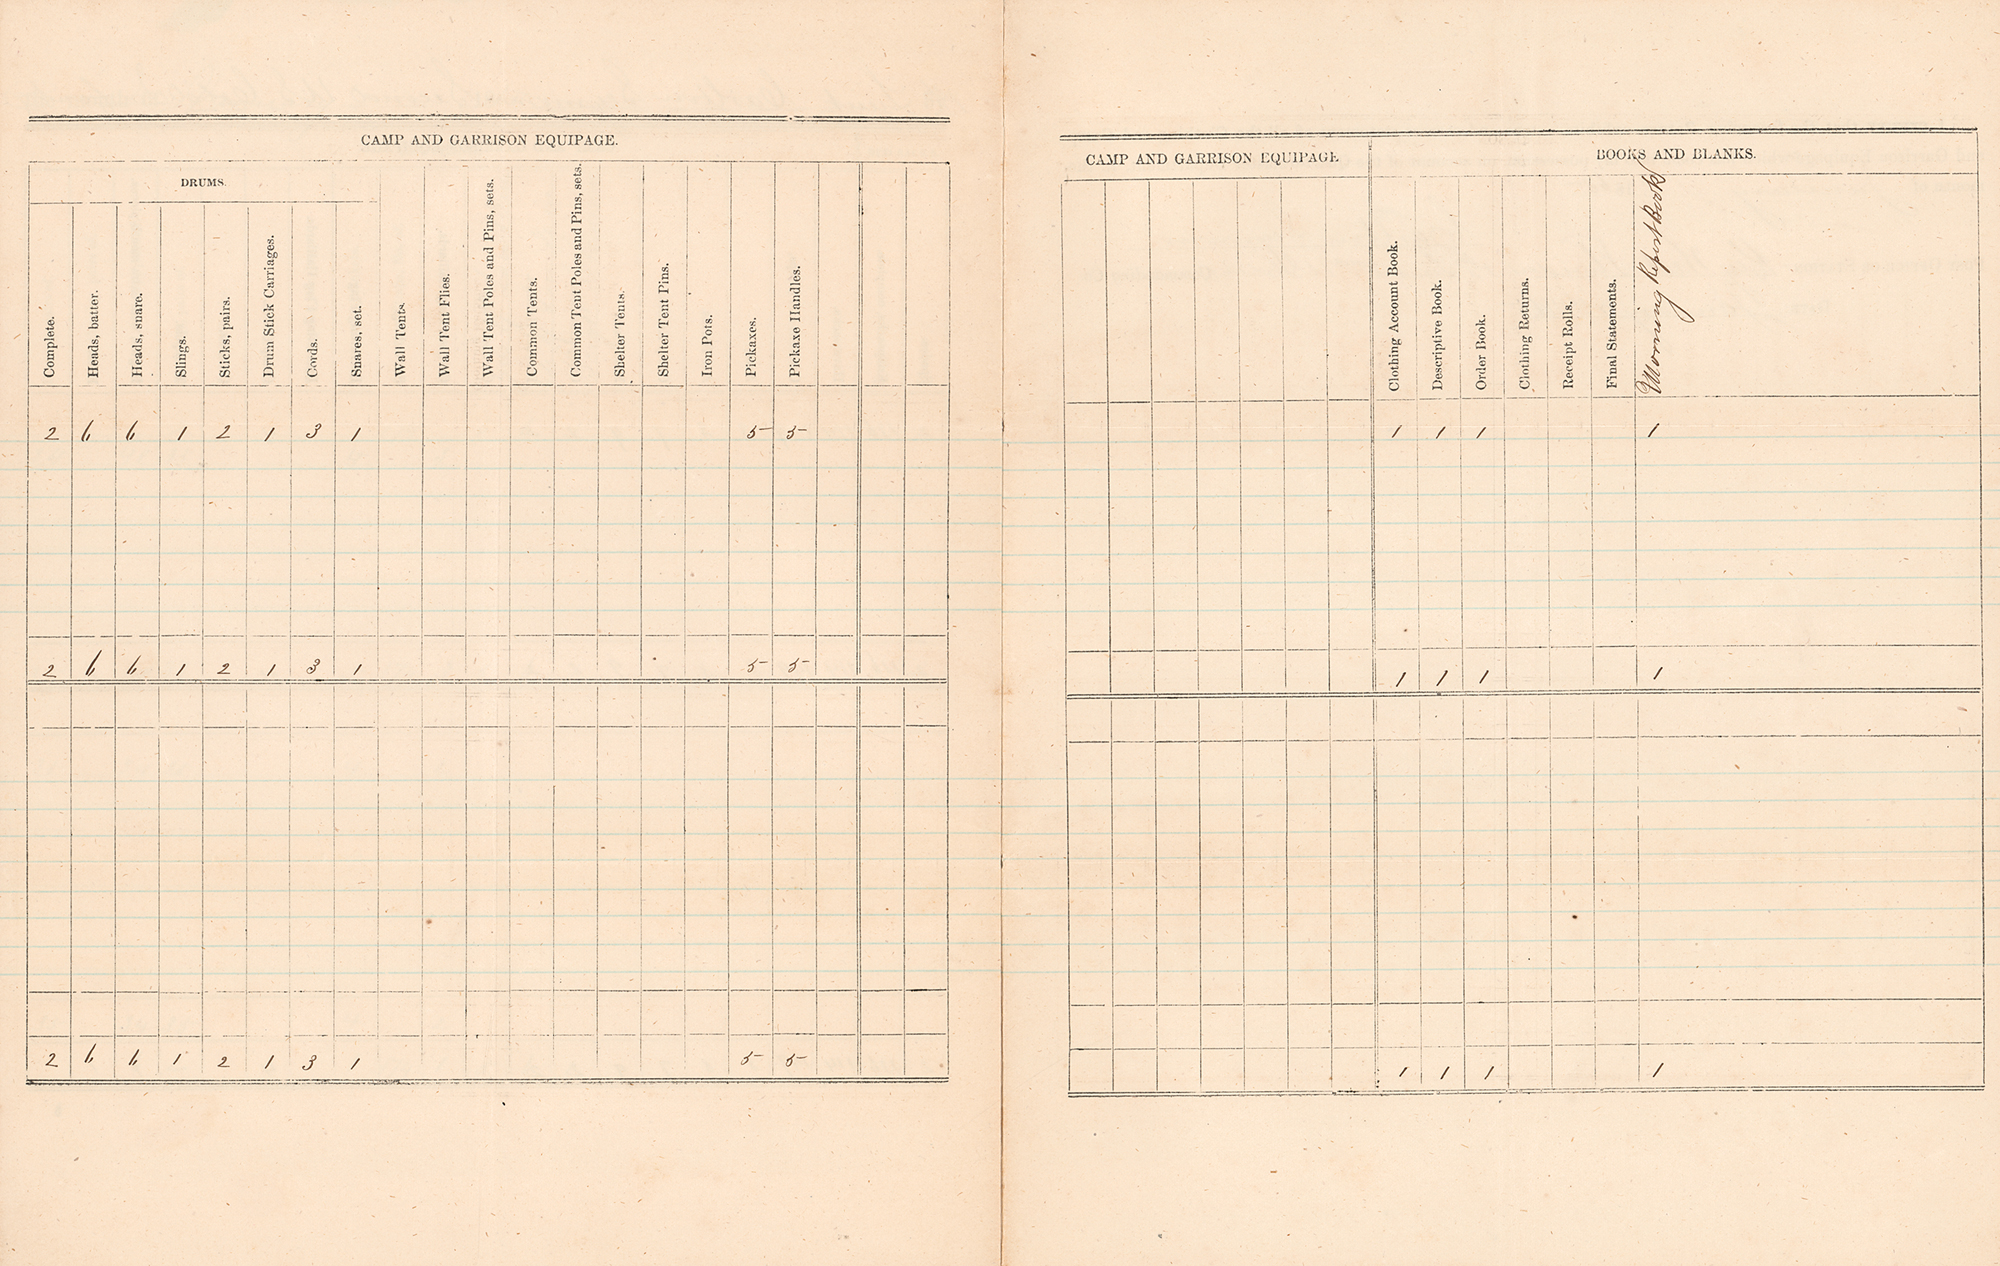 CAMP AND GARRISON EQUIPAGE.
DRUMS.
Complete.
Heads, batter.
Heads, snare.
Slings.
Sticks, pairs.
Drum Stick Carriages.
Cords.
Snares, set.
Wall Tents.
Wall Tent Flies.
Wall Tent Poles and Pins, sets.
Common Tents.
Common Tent Poles and Pins, sets.
Shelter Tents.
Shelter Tent Pins.
Iron Pots.
Pickaxes.
Pickaxe Handles.
2 6 6 1 2 1 3 1 5 5
2 6 6 1 2 1 3 1 5 5
2 6 6 1 2 1 3 1 5 5
CAMP AND GARRISON EQUIPAGE
BOOKS AND BLANKS.
Clothing Account Book.
Descriptive Book.
Order Book.
Clothing Returns.
Receipt Rolls.
Final Statements.
Morning Report Book
1 1 1 1
1 1 1 1
1 1 1 1